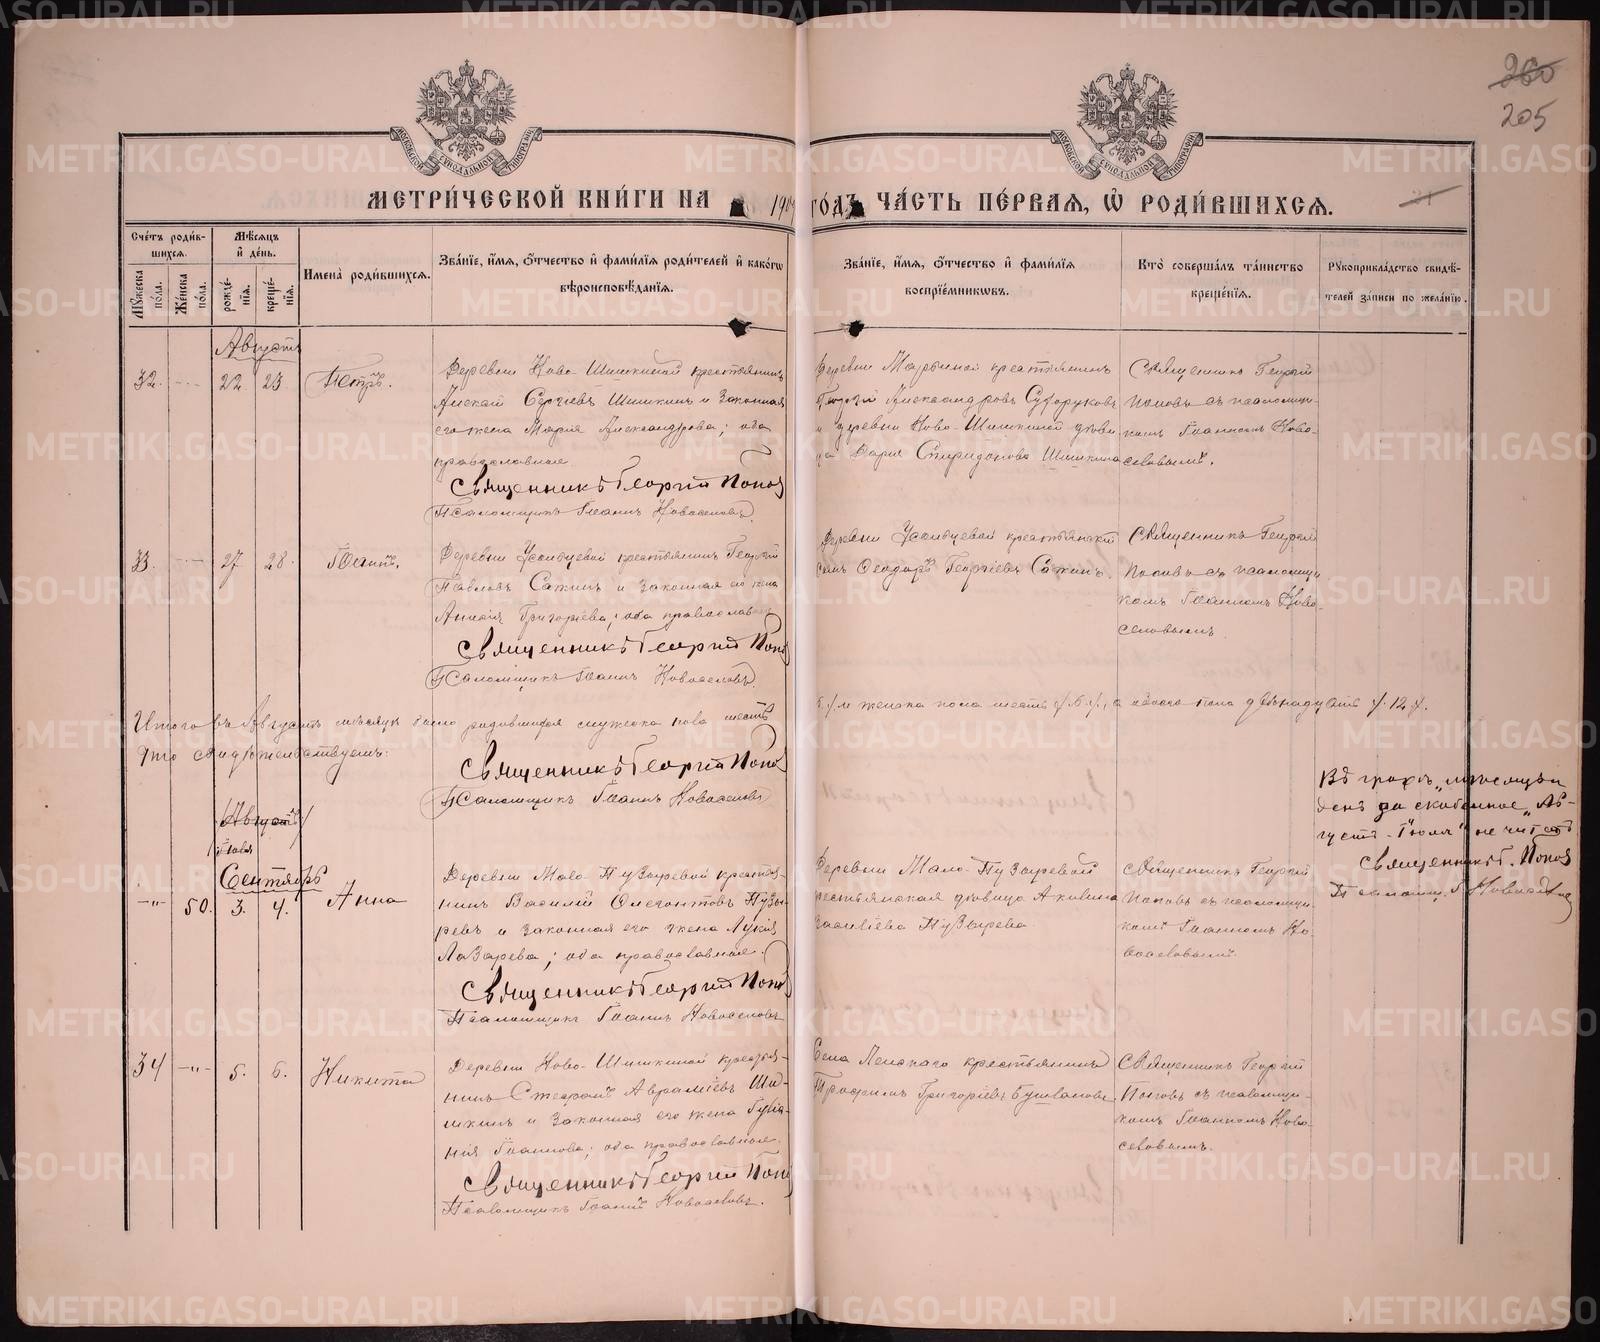 260
205
МЕТРИ́ЧЕСКОЙ КНИ́ГИ НА 190
ГО́ДЪ ЧА́СТЬ ПЕ́РВАЯ, Ѡ҆ РОДИ́ВШИХСЯ.
Сче́тъ роди́в-
шихся.
Мѣ́сяцъ
и҆ де́нь.
Мꙋ́жеска
по́ла.
Же́нска
по́ла.
рожде́-
нїя.
креще́-
нїя.
И҆мена̀ роди́вшихся.
Зва́нїе, и҆́мя, ѻ҆́тчество и҆ фами́лїя роди́телей и҆ како́гѡ
вѣроисповѣ́данїя.
Зва́нїе, и҆́мя, ѻ҆́тчество и҆ фами́лїя
воспрїе́мникѡвъ.
Кто̀ соверша́лъ та́инство
креще́нїя.
Рꙋкоприкла́дство свидѣ́-
телей за́писи по жела́нїю.
Августъ
32. 22 23 Петръ.
Деревни Ново-Шишкиной крестьянинъ
Алексій Сергіевъ Шишкинъ и законная
его жена Марія Александрова; оба
православные
Священникъ Георгій Попов
Псаломщикъ Іоаннъ Новоселовъ
Деревни Марьиной крестьянинъ
Георгій Александровъ Сухоруковъ
и деревни Ново-Шишкиной дѣви
ца Дарья Спиридонова Шишкина
Священникъ Георгій
Поповъ съ псаломщи-
комъ Іоанномъ Ново-
селовымъ.
33. 27 28. Іоаннъ.
Деревни Усольцевой крестьянинъ Георгій
Павловъ Сажинъ и законная его жена
Григорьева; оба православ
Священникъ Георгій Попо
Псаломщикъ Іоаннъ Новоселовъ
Деревни Усольцевой крестьянскій
сынъ Ѳеодоръ Георгіевъ Сажинъ.
Священникъ Георгій
Поповъ съ псаломщи
комъ Іоанномъ Ново-
селовымъ.
Итого въ Августѣ мѣсяцѣ было родившихся мужеска пола шесть
6./ и женска пола шесть /6./, а обоего пола двѣнадцать /12/.
Что свидѣтельствуемъ:
Священникъ Георгій Попов
Псаломщикъ Іоаннъ Новоселовъ
Въ графѣ „мѣсяцъ и
день за скобленное „Ав-
густъ - Іюля" не читать
Священникъ Г. Попов
Псаломщ. І. Новоселов
/Августъ/
Іюля
Сентябрь
-"- 50. 3. 4. Анна
Деревни Мало-Пузыревой крестья-
нинъ Василій Пузы-
ревъ и законная его жена Лукія
Лазарева; оба православные.
Священникъ Георгій Попо
Псаломщикъ Іоаннъ Новоселовъ
Деревни Мало-Пузыревой
крестьянская дѣвица Акилина
Василіева Пузырева
Священникъ Георгій
Поповъ съ псаломщи-
комъ Іоанномъ Но-
воселовымъ.
34 -"- 5. 6. Никита
Деревни Ново-Шишкиной крестья-
нинъ Стефанъ Авраміевъ Ши-
шкинъ и законная его жена
Іоаннова; оба православные.
Священникъ Георгій Попо
Псаломщикъ Іоаннъ Новоселовъ.
Села Ленскаго крестьянинъ
Трофимъ Григорьевъ Бушланов
Священникъ Георгій
Поповъ съ псаломщи-
комъ Іоанномъ Ново-
селовымъ.
METRIKI.GASO-URAL.RU